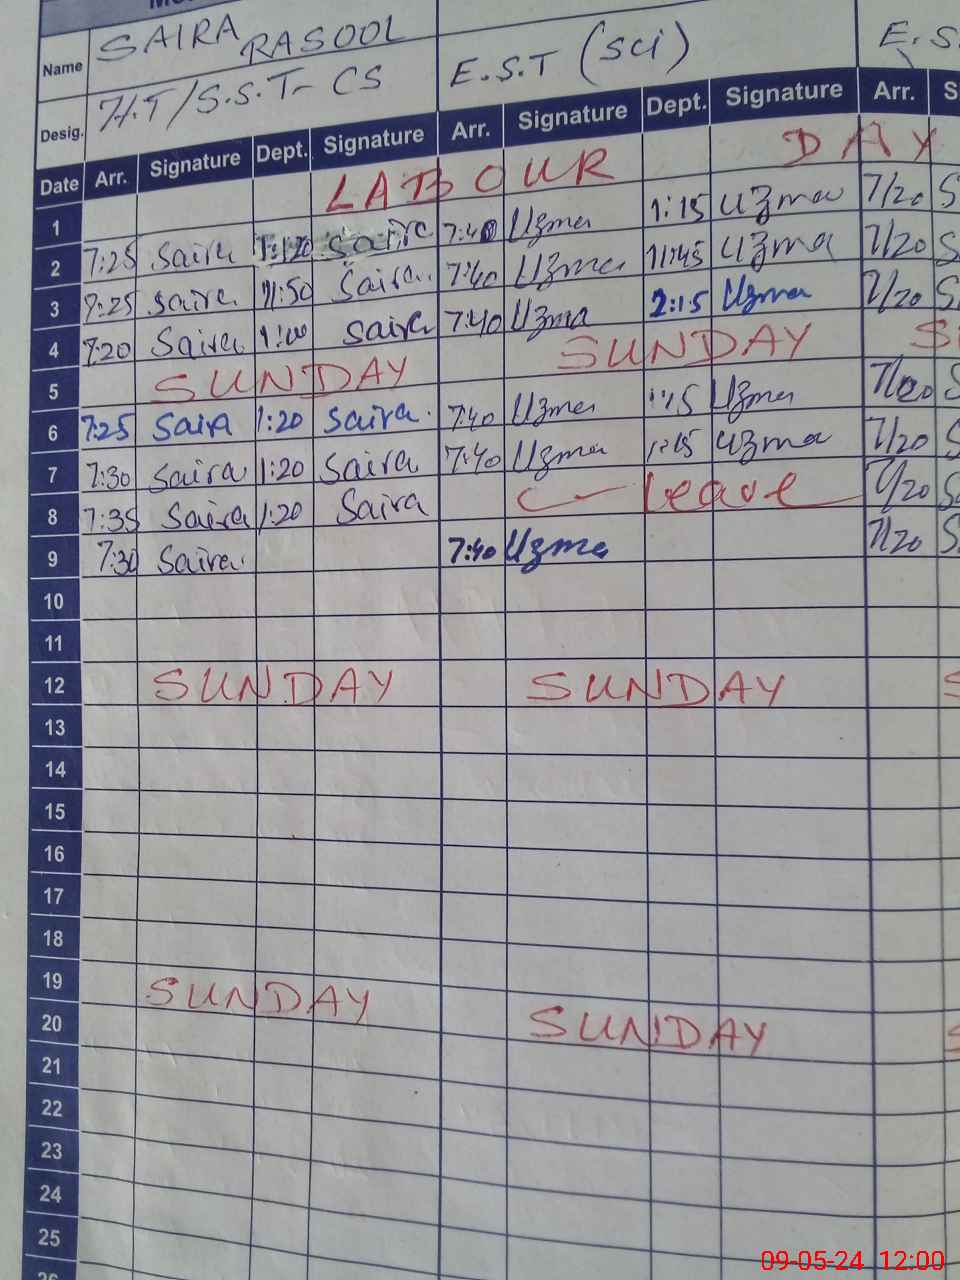 Name SAIRA RASOOL E.S.T (Sci) E.S.
Desig. H.T/S.S.T- CS
Date Arr. Signature Dept. Signature Arr. Signature Dept. Signature Arr. S
1 LABOUR DAY
2 7:25 Saira 1:20 Saira 7:40 Uzma 1:15 Uzma 7/20 S
3 7:25 Saira 11:50 Saira. 7:40 Uzma 11:45 Uzma 7/20 S
4 7:20 Saira 1:00 Saira 7:40 Uzma 2:15 Uzma 7/20 S
5 SUNDAY SUNDAY S
6 7:25 Saira 1:20 Saira. 7:40 Uzma 1:15 Uzma 7/20 S
7 7:30 Saira 1:20 Saira 7:40 Uzma 1:15 Uzma 7/20 S
8 7:35 Saira 1:20 Saira Leave 7/20 S
9 7:30 Saira 7:40 Uzma 7/20 S
10
11
12 SUNDAY SUNDAY S
13
14
15
16
17
18
19 SUNDAY SUNDAY S
20
21
22
23
24
25
26
09-05-24 12:00